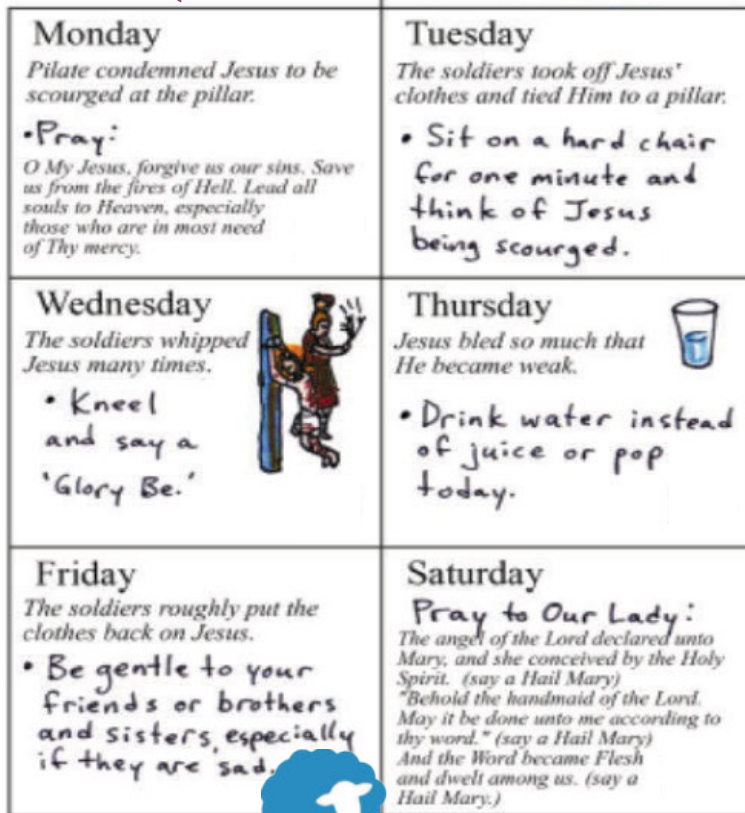 Monday
Pilate condemned Jesus to be
scourged at the pillar.
• Pray:
O My Jesus, forgive us our sins. Save
us from the fires of Hell. Lead all
souls to Heaven, especially
those who are in most need
of Thy mercy.
Tuesday
The soldiers took off Jesus'
clothes and tied Him to a pillar.
• Sit on a hard chair
for one minute and
think of Jesus
being scourged.
Wednesday
The soldiers whipped
Jesus many times.
• Kneel
and say a
'Glory Be.'
Thursday
Jesus bled so much that
He became weak.
• Drink water instead
of juice or pop
today.
Friday
The soldiers roughly put the
clothes back on Jesus.
• Be gentle to your
friends or brothers
and sisters, especially
if they are sad.
Saturday
Pray to Our Lady:
The angel of the Lord declared unto
Mary, and she conceived by the Holy
Spirit. (say a Hail Mary)
"Behold the handmaid of the Lord.
May it be done unto me according to
thy word." (say a Hail Mary)
And the Word became Flesh
and dwelt among us. (say a
Hail Mary.)